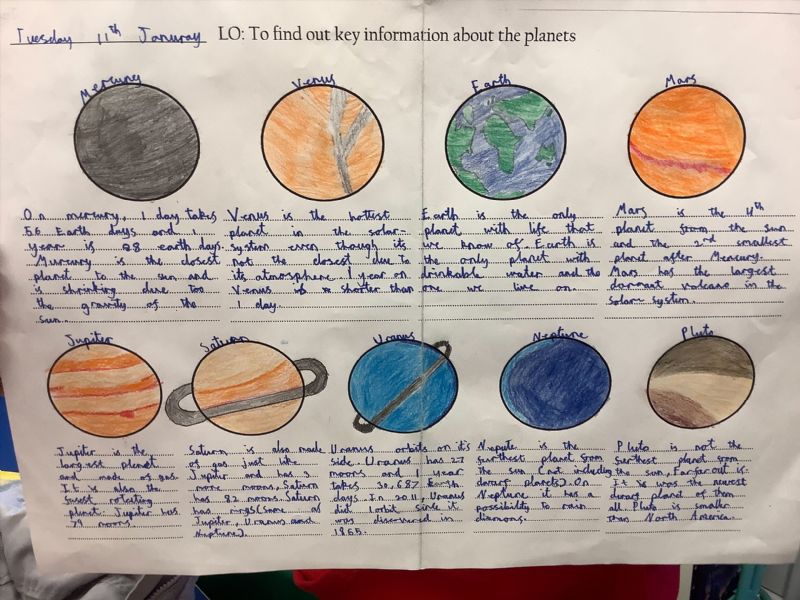 Tuesday 11th Januray LO: To find out key information about the planets
Mercury
On mercury, 1 day takes
56 Earth days and 1
year is 88 earth days.
Murcury is the closest
planet to the sun and
is shrinking due too
the gravity of the
sun.
Venus
Venus is the hottest
planet in the solar-
system even though its
not the closest due to
its atmosphere. 1 year on
Venus is shorter than
1 day.
Earth
Earth is the only
planet with life that
we know of. Earth is
the only planet with
drinkable water and the
one we live on.
Mars
Mars is the 4th
planet from the sun
and the 2nd smallest
planet after Mercury.
Mars has the largest
dormant volcano in the
solar system.
Jupiter
Jupiter is the
largest planet
and made of gas.
It is also the
fastest rotating
planet. Jupiter has
79 moons
Saturn
Saturn is also made
of gas just like
Jupiter and has
more moons, Saturn
has 82 moons. Saturn
has rings (same as
Jupiter, Uranus and
Neptune).
Uranus
Uranus orbits on it's
side. Uranus has 27
moons and 1 year
takes 30,687 Earth
days. In 2011, Uranus
did 1 orbit since it
was discovered in
1865.
Neptune
Nepute is the
furthest planet from
the sun (not including
dwarf planets). On
Neptune it has a
possibility to rain
diamons.
Pluto
Pluto is not the
furthest planet from
the sun, Farfarout is.
It is was the nearest
dwarf planet of them
all. Pluto is smaller
than North America.